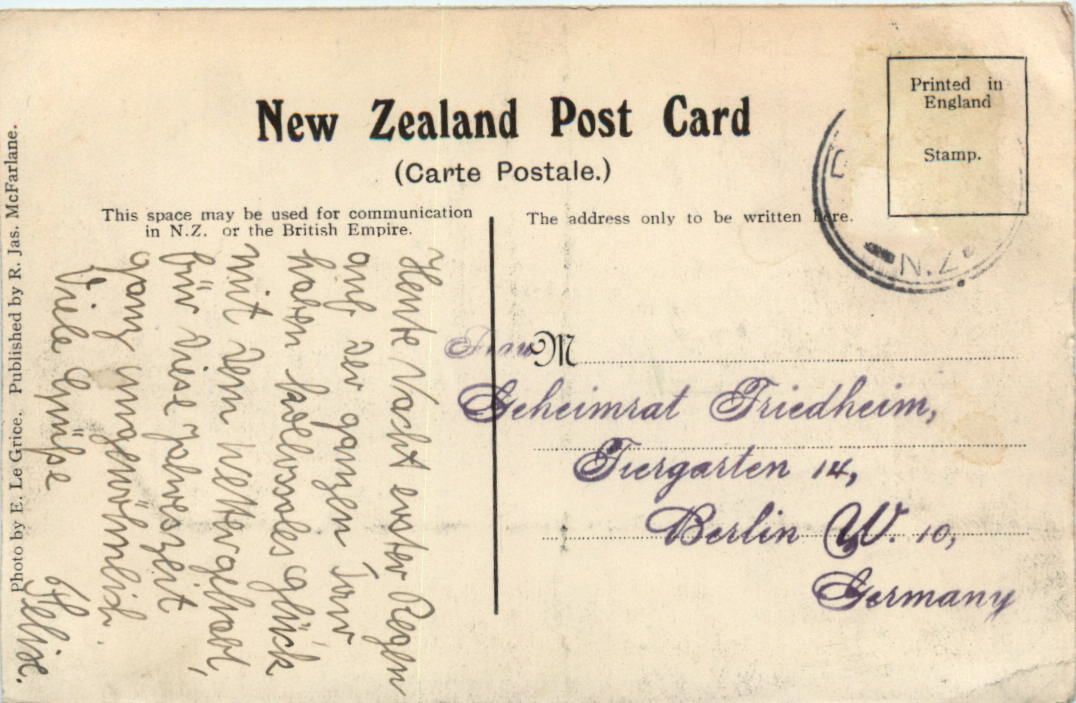 New Zealand Post Card
(Carte Postale.)
This space may be used for communication
in N.Z. or the British Empire.
The address only to be written here.
Printed in
England
Stamp.
N.Z.
Photo by E. Le Grice. Published by R. Jas. McFarlane.
Heute Nacht erster Regen
auf der ganzen Tour
haben kolossales Glück
mit dem Wetter gehabt,
für diese Jahreszeit
ganz ungewöhnlich
Viele Grüße
Felix.
Frau M
Geheimrat Friedheim,
Tiergarten 14,
Berlin W. 10,
Germany